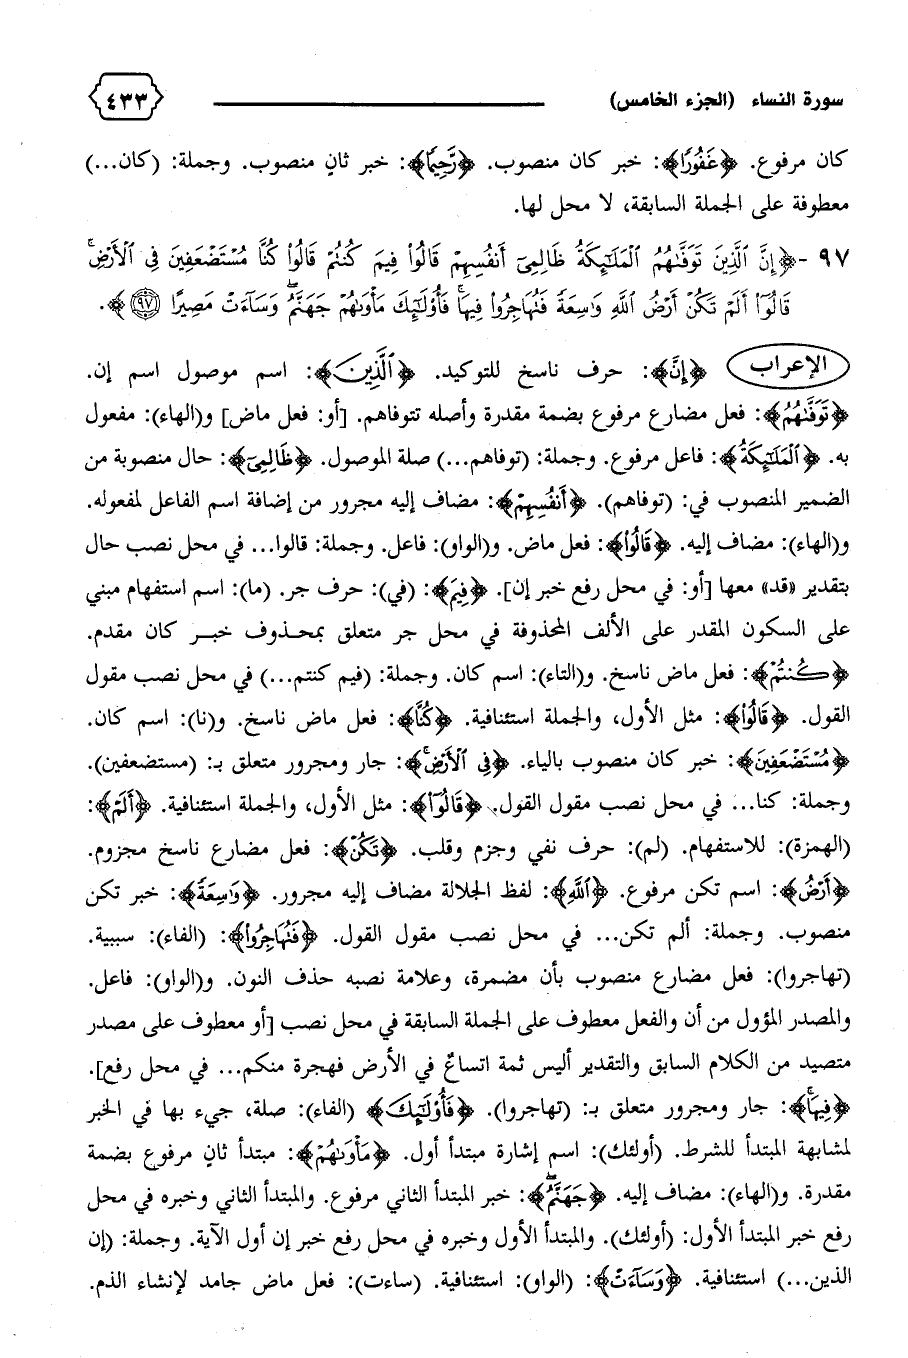 سورة النساء (الجزء الخامس) ٤٣٣
كان مرفوع. ﴿غَفُورًا﴾: خبر كان منصوب. ﴿رَّحِيمًا﴾: خبر ثانٍ منصوب. وجملة: (كان...)
معطوفة على الجملة السابقة، لا محل لها.
٩٧ -﴿إِنَّ ٱلَّذِينَ تَوَفَّىٰهُمُ ٱلْمَلَٰٓئِكَةُ ظَالِمِىٓ أَنفُسِهِمْ قَالُوا۟ فِيمَ كُنتُمْ قَالُوا۟ كُنَّا مُسْتَضْعَفِينَ فِى ٱلْأَرْضِ ۚ
قَالُوٓا۟ أَلَمْ تَكُنْ أَرْضُ ٱللَّهِ وَٰسِعَةً فَتُهَاجِرُوا۟ فِيهَا ۚ فَأُو۟لَٰٓئِكَ مَأْوَىٰهُمْ جَهَنَّمُ ۖ وَسَآءَتْ مَصِيرًا ٩٧﴾.
الإعراب ﴿إِنَّ﴾: حرف ناسخ للتوكيد. ﴿ٱلَّذِينَ﴾: اسم موصول اسم إن.
﴿تَوَفَّىٰهُمُ﴾: فعل مضارع مرفوع بضمة مقدرة وأصله تتوفاهم. [أو: فعل ماض] و(الهاء): مفعول
به. ﴿ٱلْمَلَٰٓئِكَةُ﴾: فاعل مرفوع. وجملة: (توفاهم...) صلة الموصول. ﴿ظَالِمِىٓ﴾: حال منصوبة من
الضمير المنصوب في: (توفاهم). ﴿أَنفُسِهِمْ﴾: مضاف إليه مجرور من إضافة اسم الفاعل لمفعوله.
و(الهاء): مضاف إليه. ﴿قَالُوا۟﴾: فعل ماض. و(الواو): فاعل. وجملة: قالوا... في محل نصب حال
بتقدير «قد» معها [أو: في محل رفع خبر إن]. ﴿فِيمَ﴾: (في): حرف جر. (ما): اسم استفهام مبني
على السكون المقدر على الألف المحذوفة في محل جر متعلق بمحذوف خبر كان مقدم.
﴿كُنتُمْ﴾: فعل ماض ناسخ. و(التاء): اسم كان. وجملة: (فيم كنتم...) في محل نصب مقول
القول. ﴿قَالُوا۟﴾: مثل الأول، والجملة استئنافية. ﴿كُنَّا﴾: فعل ماض ناسخ. و(نا): اسم كان.
﴿مُسْتَضْعَفِينَ﴾: خبر كان منصوب بالياء. ﴿فِى ٱلْأَرْضِ ۚ﴾: جار ومجرور متعلق بـ: (مستضعفين).
وجملة: كنا... في محل نصب مقول القول. ﴿قَالُوٓا۟﴾: مثل الأول، والجملة استئنافية. ﴿أَلَمْ﴾:
(الهمزة): للاستفهام. (لم): حرف نفي وجزم وقلب. ﴿تَكُنْ﴾: فعل مضارع ناسخ مجزوم.
﴿أَرْضُ﴾: اسم تكن مرفوع. ﴿ٱللَّهِ﴾: لفظ الجلالة مضاف إليه مجرور. ﴿وَٰسِعَةً﴾: خبر تكن
منصوب. وجملة: ألم تكن... في محل نصب مقول القول. ﴿فَتُهَاجِرُوا۟﴾: (الفاء): سببية.
(تهاجروا): فعل مضارع منصوب بأن مضمرة، وعلامة نصبه حذف النون. و(الواو): فاعل.
والمصدر المؤول من أن والفعل معطوف على الجملة السابقة في محل نصب [أو معطوف على مصدر
متصيد من الكلام السابق والتقدير أليس ثمة اتساعٌ في الأرض فهجرة منكم... في محل رفع].
﴿فِيهَا ۚ﴾: جار ومجرور متعلق بـ: (تهاجروا). ﴿فَأُو۟لَٰٓئِكَ﴾ (الفاء): صلة، جيء بها في الخبر
لمشابهة المبتدأ للشرط. (أولئك): اسم إشارة مبتدأ أول. ﴿مَأْوَىٰهُمْ﴾: مبتدأ ثانٍ مرفوع بضمة
مقدرة. و(الهاء): مضاف إليه. ﴿جَهَنَّمُ ۖ﴾: خبر المبتدأ الثاني مرفوع. والمبتدأ الثاني وخبره في محل
رفع خبر المبتدأ الأول: (أولئك). والمبتدأ الأول وخبره في محل رفع خبر إن أول الآية. وجملة: (إن
الذين...) استئنافية. ﴿وَسَآءَتْ﴾: (الواو): استئنافية. (ساءت): فعل ماض جامد لإنشاء الذم.